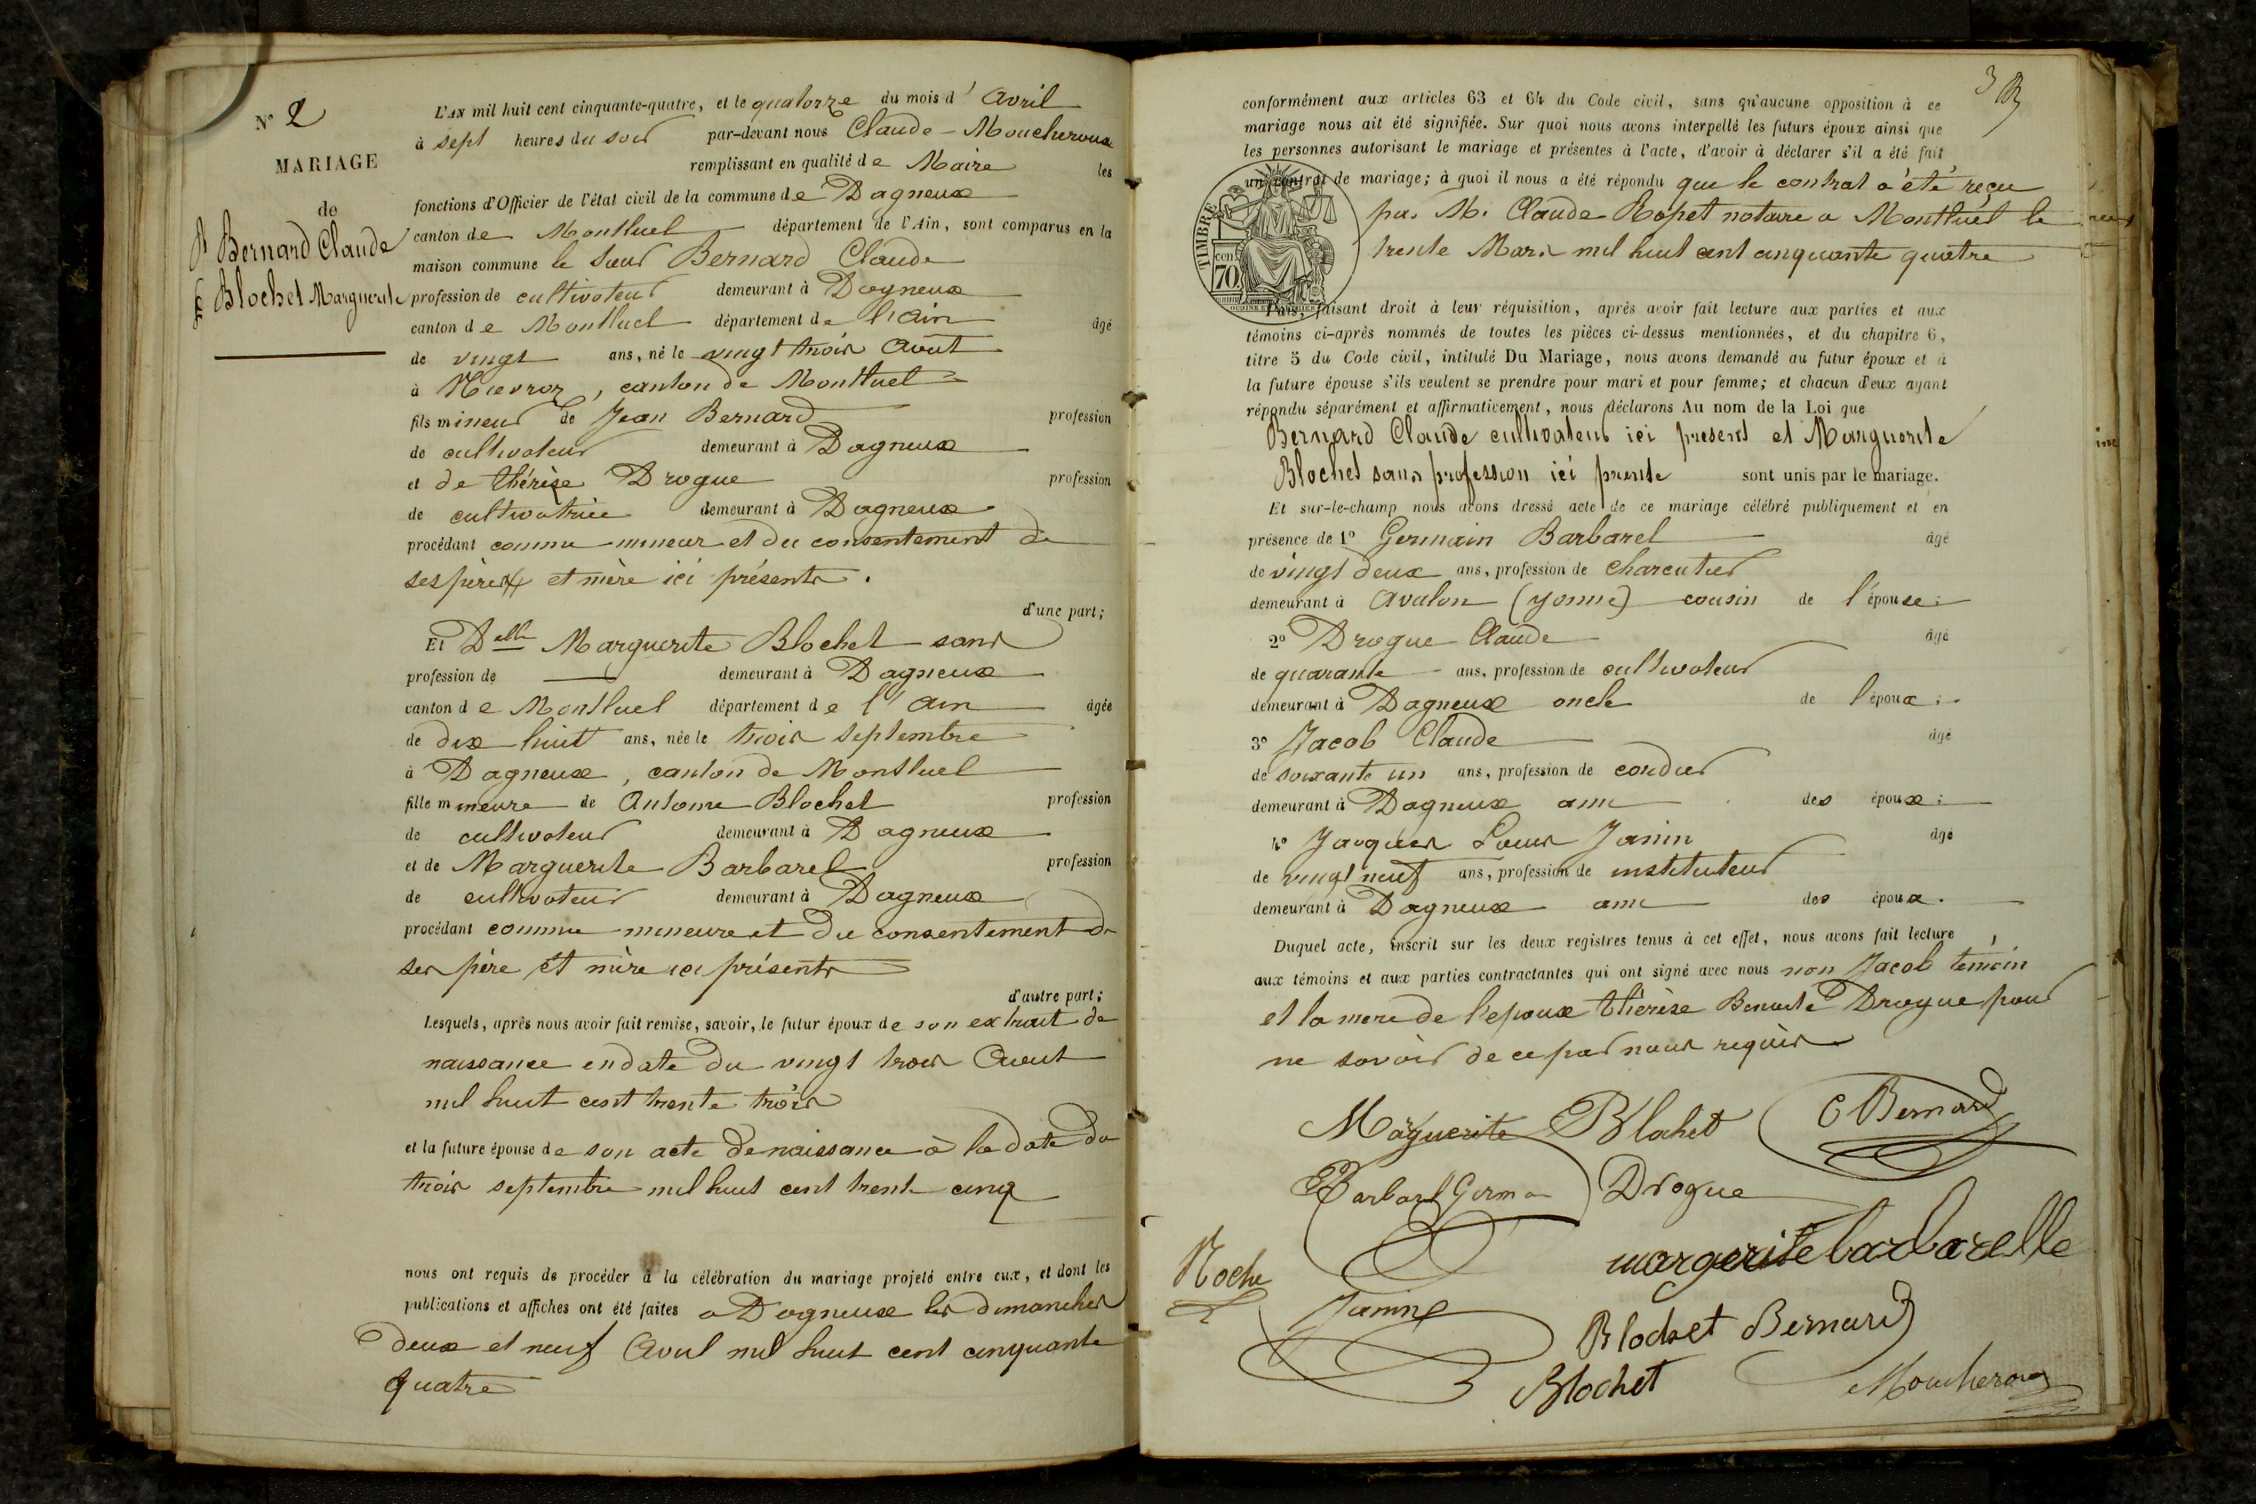 N° 2
MARIAGE
de
Bernard Claude
Blochet Marguerite
L'AN mil huit cent cinquante-quatre, et le quatorze du mois d' Avril
à sept heures du soir par-devant nous Claude - Moucheroux
remplissant en qualité de Maire les
fonctions d'Officier de l'état civil de la commune de Dagneux
canton de Montluel département de l'Ain, sont comparus en la
maison commune le Sieur Bernard Claude
profession de cultivateur demeurant à Dagneux
canton de Montluel département de l'ain âgé
de vingt ans, né le vingt trois Août
à Nievroz, canton de Montluel
fils mineur de Jean Bernard profession
de cultivateur demeurant à Dagneux
et de thérèse Drogue profession
de cultivatrice demeurant à Dagneux
procédant comme mineur et du consentement de
ses père et mère ici présents.
d'une part;
Et Delle Marguerite Blochet sans
profession de demeurant à Dagneux
canton de Montluel département de l'ain âgée
de dix huit ans, née le trois septembre
à Dagneux, canton de Montluel
fille mineure de Antoine Blochet profession
de cultivateur demeurant à Dagneux
et de Marguerite Barbarel profession
de cultivateur demeurant à Dagneux
procédant comme mineure et du consentement de
ses père et mère ici présents
d'autre part;
Lesquels, après nous avoir fait remise, savoir, le futur époux de son extrait de
naissance en date du vingt trois Aout
mil huit cent trente trois
et la future épouse de son acte de naissance à la date du
trois septembre mil huit cent trente cinq
nous ont requis de procéder à la célébration du mariage projeté entre eux, et dont les
publications et affiches ont été faites a Dagneux les dimanches
deux et neuf Avril mil huit cent cinquante
quatre
3
conformément aux articles 63 et 64 du Code civil, sans qu'aucune opposition à ce
mariage nous ait été signifiée. Sur quoi nous avons interpellé les futurs époux ainsi que
les personnes autorisant le mariage et présentes à l'acte, d'avoir à déclarer s'il a été fait
un contrat de mariage; à quoi il nous a été répondu que le contrat a été reçu
par M. Claude Ropet notaire a Montluel le
trente Mars mil huit cent cinquante quatre
TIMBRE
cen 70
Puis, faisant droit à leur réquisition, après avoir fait lecture aux parties et aux
témoins ci-après nommés de toutes les pièces ci-dessus mentionnées, et du chapitre 6,
titre 5 du Code civil, intitulé Du Mariage, nous avons demandé au futur époux et à
la future épouse s'ils veulent se prendre pour mari et pour femme; et chacun d'eux ayant
répondu séparément et affirmativement, nous déclarons Au nom de la Loi que
Bernard Claude cultivateur ici présent et Marguerite
Blochet sans profession ici prente sont unis par le mariage.
Et sur-le-champ nous avons dressé acte de ce mariage célébré publiquement et en
présence de 1° Germain Barbarel âgé
de vingt deux ans, profession de charcutier
demeurant à Avalon (yonne) cousin de l'épouse;
2° Drogue Claude âgé
de quarante ans, profession de cultivateur
demeurant à Dagneux oncle de l'époux;
3° Jacob Claude âgé
de soixante un ans, profession de cordier
demeurant à Dagneux ami des époux;
4° Jacques Louis Janin âgé
de vingt neuf ans, profession de instituteur
demeurant à Dagneux ami des époux.
Duquel acte, inscrit sur les deux registres tenus à cet effet, nous avons fait lecture
aux témoins et aux parties contractantes qui ont signé avec nous non Jacob témoin
et la mere de l'epoux thérèse Benoite Drogue pour
ne savoir de ce par nous requis
Marguerite Blochet C Bernard
Barbarel Germain Drogue
margerite barbarelle
Roche
Janin
Blochet Bernard
Blochet
Moucheroux